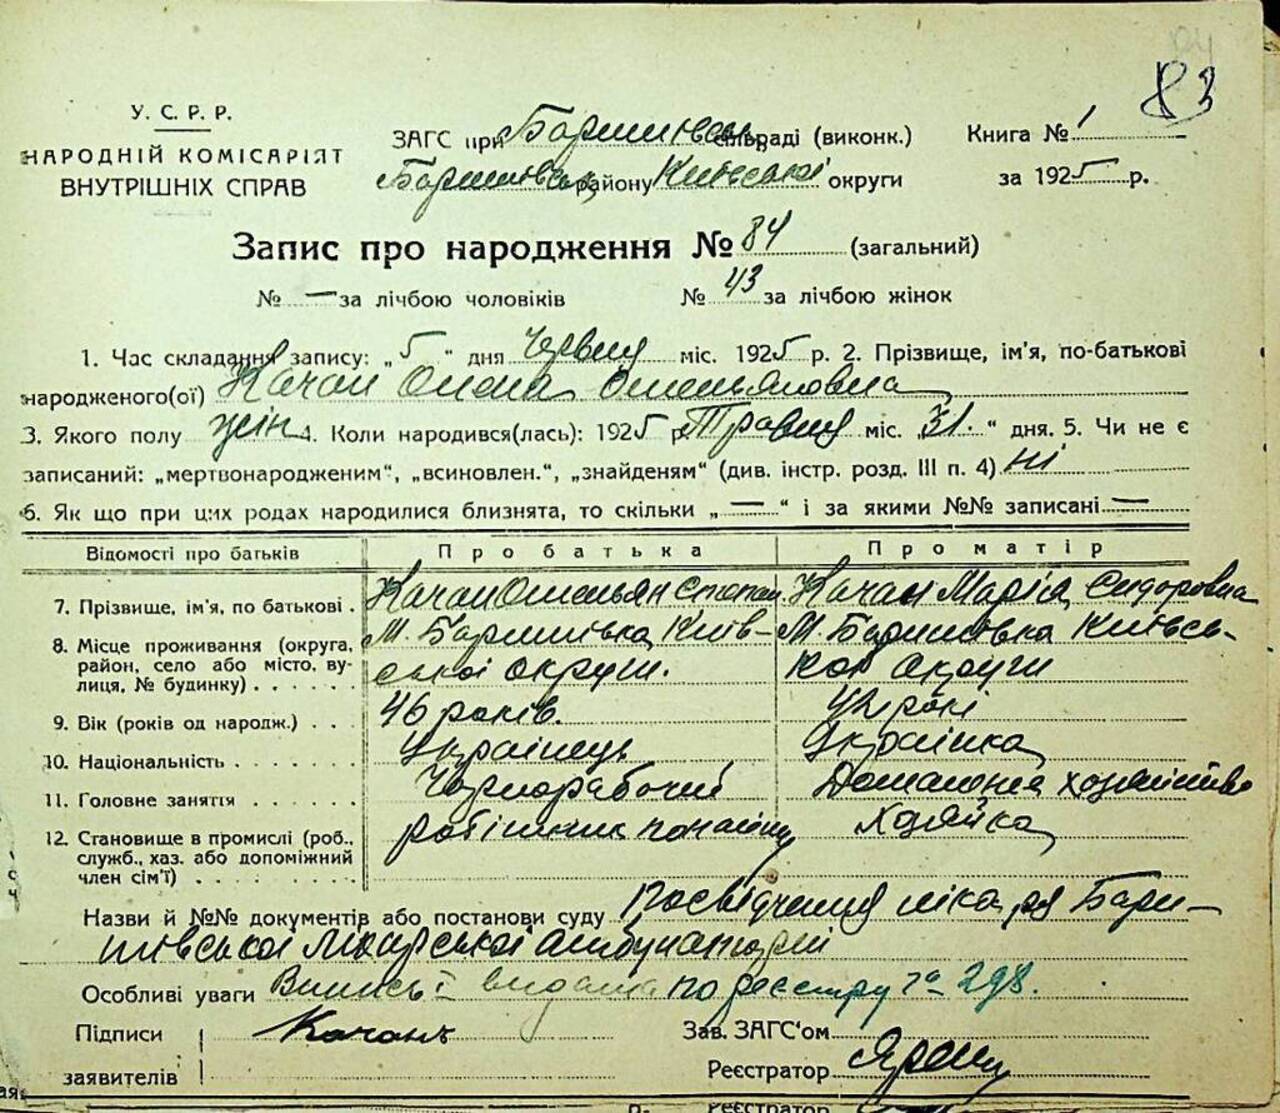 83
У. С. Р. Р.
НАРОДНІЙ КОМІСАРІЯТ
ВНУТРІШНІХ СПРАВ
ЗАГС при Баришівськ. сільраді (виконк.)
Баришівськ. району Київської округи
Книга № 1
за 1925 р.
Запис про народження № 84 (загальний)
№ — за лічбою чоловіків № 43 за лічбою жінок
1. Час складання запису: „5“ дня Червня міс. 1925 р. 2. Прізвище, ім'я, по-батькові
народженого(ої) Качан Олена Омельяновна
3. Якого полу жін. 4. Коли народився(лась): 1925 р. Травня міс. „31.“ дня. 5. Чи не є
записаний: „мертвонародженим“, „всиновлен.“, „знайденям“ (див. інстр. розд. III п. 4) ні
6. Як що при цих родах народилися близнята, то скільки „—“ і за якими №№ записані —
Відомості про батьків Про батька Про матір
7. Прізвище, ім'я, по батькові . Качан Омельян Степан Качан Марія Сидоровна
8. Місце проживання (округа, район, село або місто, вулиця, № будинку) . . . . . М. Баришівка Київської округи. М. Баришівка Київської округи
9. Вік (років од народж.) . . . 46 років. 42 рокі
10. Національність . . . . . . . Українець Українка
11. Головне заняття . . . . . . Чорнорабочий Домашнє хозяйство
12. Становище в промислі (роб., служб., хаз. або допоміжний член сім'ї) . . . . . . . . робітник по найму Хозяйка
Назви й №№ документів або постанови суду Посвідчення лікаря Бари-
шівської лікарської амбулаторії
Особливі уваги Випись видана по реєстру за 298.
Підписи Качанъ Зав. ЗАГС'ом
заявителів Реєстратор
Реєстратор